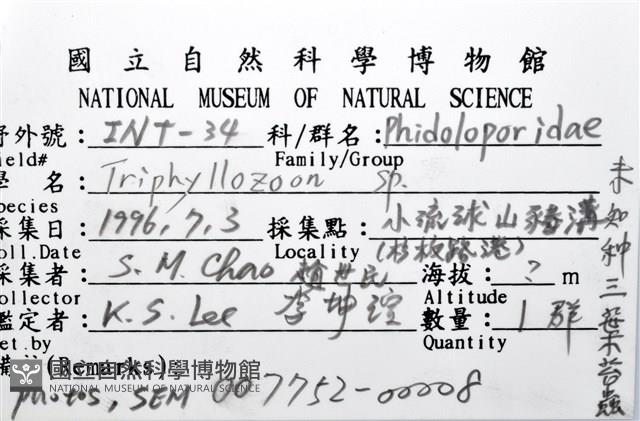 國立自然科學博物館
NATIONAL MUSEUM OF NATURAL SCIENCE
野外號：INT-34 科/群名：Phidoloporidae
ield# Family/Group
學 名：Triphyllozoon sp.
pecies
採集日：1996.7.3 採集點：小流球山豬溝
oll.Date Locality (杉板路港)
採集者：S.M. Chao 趙世民 海拔：? m
ollector Altitude
鑑定者：K.S. Lee 李坤瑄 數量：1群
et.by Quantity
(Remarks)
國立自然科學博物館
NATIONAL MUSEUM OF NATURAL SCIENCE
photos, SEM 007752-00008
未知种三葉苔蟲